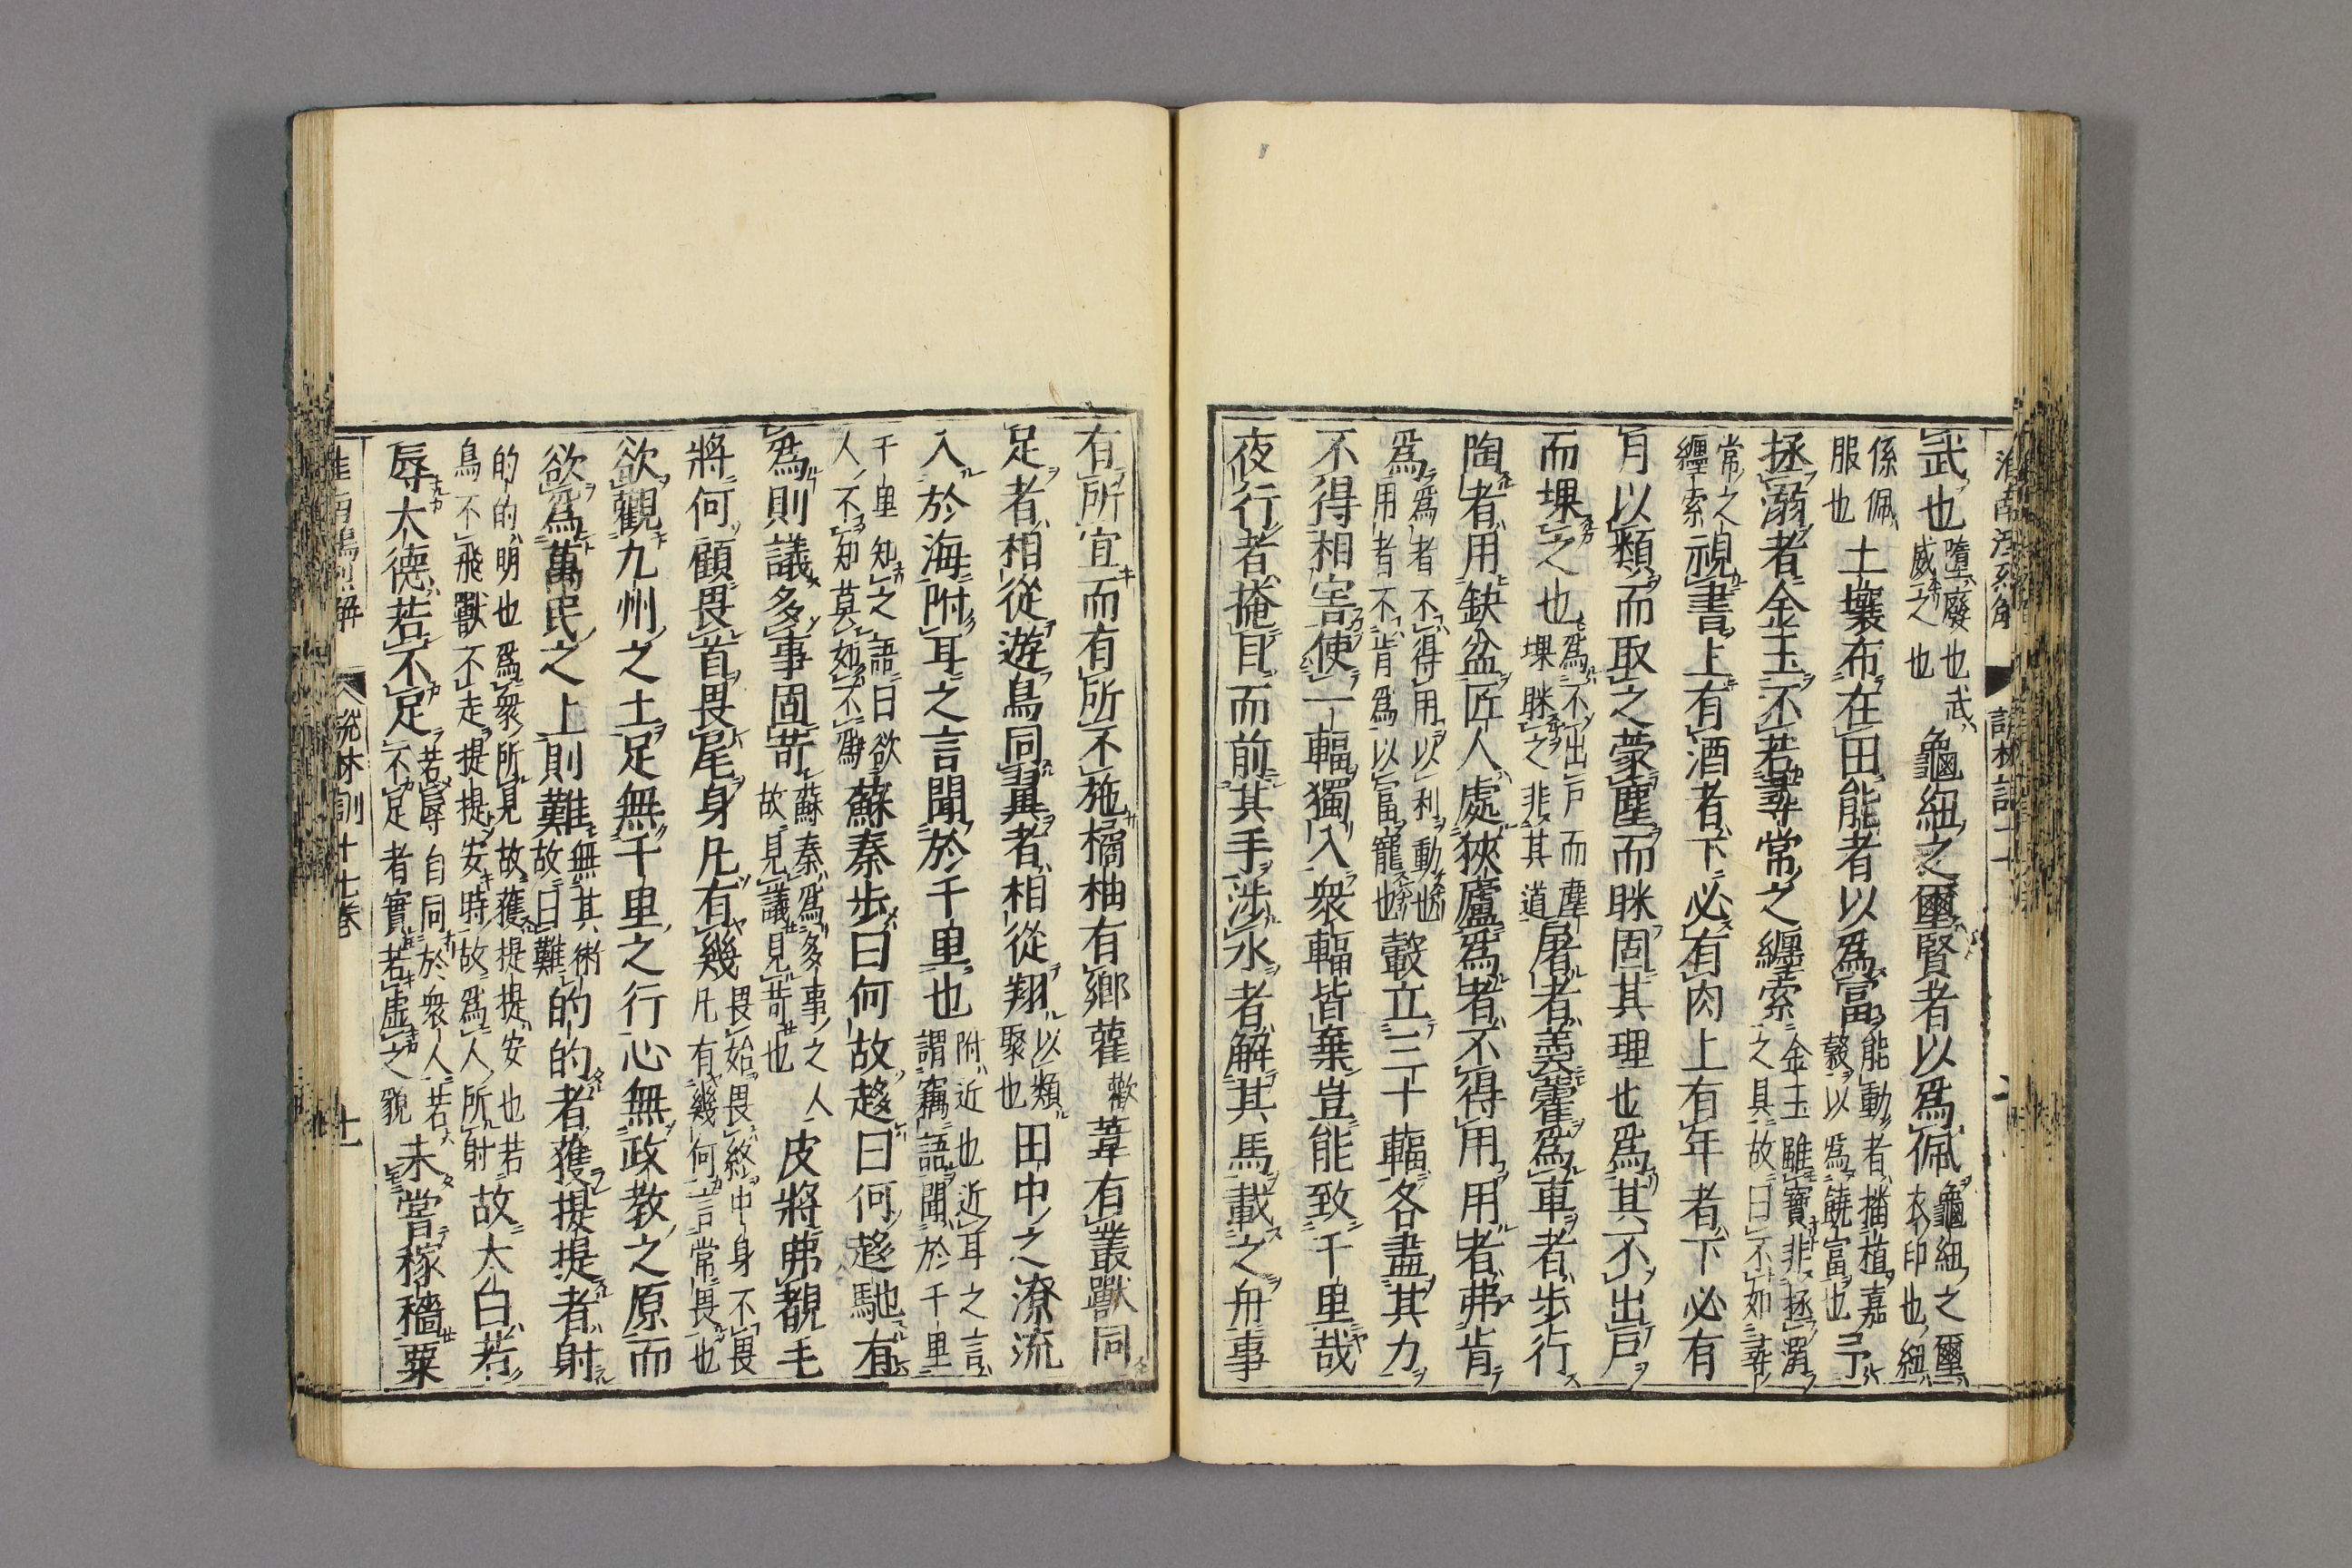 武也墮廢也武威之也龜紐之璽賢者以爲佩龜紐之璽衣印也紐
係佩服也土壤布在田能者以爲富能動者播植嘉穀以爲饒富也予
拯溺者金玉不若尋常之纏索金玉雖寶非拯溺之具故曰不如尋
常之纏索視書上有酒者下必有肉上有年者下必有
月以類而取之蒙塵而眯固其理也爲其不出戶
而堁之也爲不出戶而塵堁眯之非其道屠者羮藿爲車者步行
陶者用缺盆匠人處狹廬爲者不得用用者弗肯
爲爲者不得用以利動也用者不肯爲以富寵也轂立三十輻各盡其力
不得相害使一輻獨入衆輻皆棄豈能致千里哉
夜行者掩目而前其手涉水者解其馬載之舟事
有所宜而有所不施橘柚有鄉雚歡葦有叢獸同
足者相從遊鳥同翼者相從翔以類聚也田中之潦流
入於海附耳之言聞於千里也附近也近耳之言謂竊語聞於千里
千里知之語曰欲人不知莫如不爲蘇秦步曰何故趍曰何趍馳有
爲則議多事固苛蘇秦爲多事之人故見議見苛也皮將弗覩毛
將何顧畏首畏尾身凡有幾畏始畏終中身不畏凡有幾何言常畏也
欲觀九州之土足無千里之行心無政教之原而
欲爲萬民之上則難無其術故曰難的的者獲提提者射
的的明也爲衆所見故獲提提安也若鳥不飛獸不走提提安時故爲人所射故大白若
辱大德若不足若辱自同於衆人若不足者實若虛之貌未嘗稼穡粟
說林訓十七卷 十一